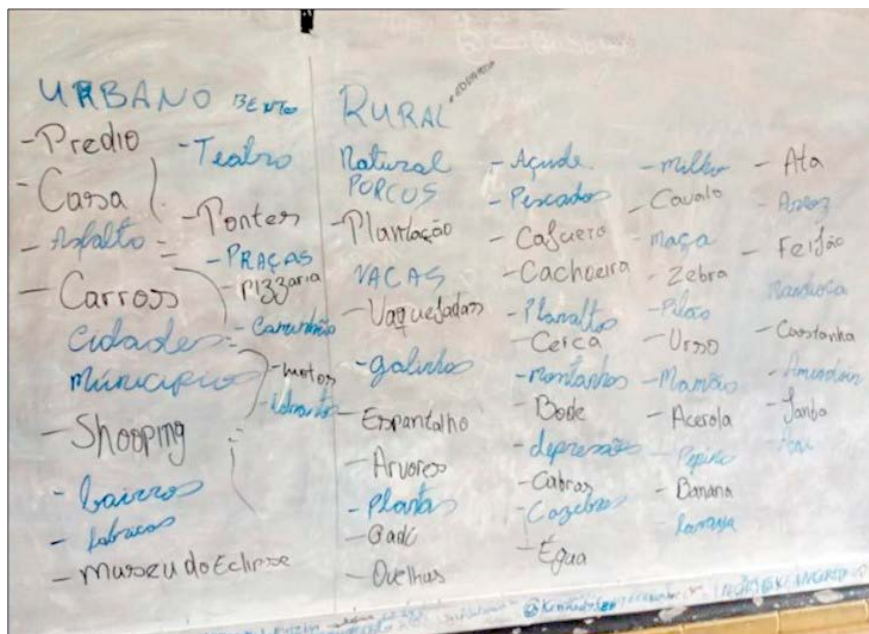 URBANO
- Predio
- Casa
- Asfalto
- Carros
Cidades
Municipios
- Shooping
- bairros
- fabricas
- Museu do Eclipse
- Teatro
- Pontes
- PRAÇAS
- Pizzaria
- Caminhão
- motos
RURAL
Natural
PORCUS
- Plantação
VACAS
- Vaquejadas
- galinhas
- Espantalho
- Arvores
- Plantas
- Gado
- Ovelhas
- Açude
- Pescados
- Cajuero
- Cachoeira
- Planaltos
- Cerca
- montanhas
- Bode
- depressões
- Cabras
- Cazebras
- Égua
- milho
- Cavalo
- maça
- Zebra
- Pilão
- Urso
- Mamão
- Acerola
- Pepino
- Banana
- laranja
- Ata
- Arroz
- Feijão
Mandioca
- Castanha
- Amendoin